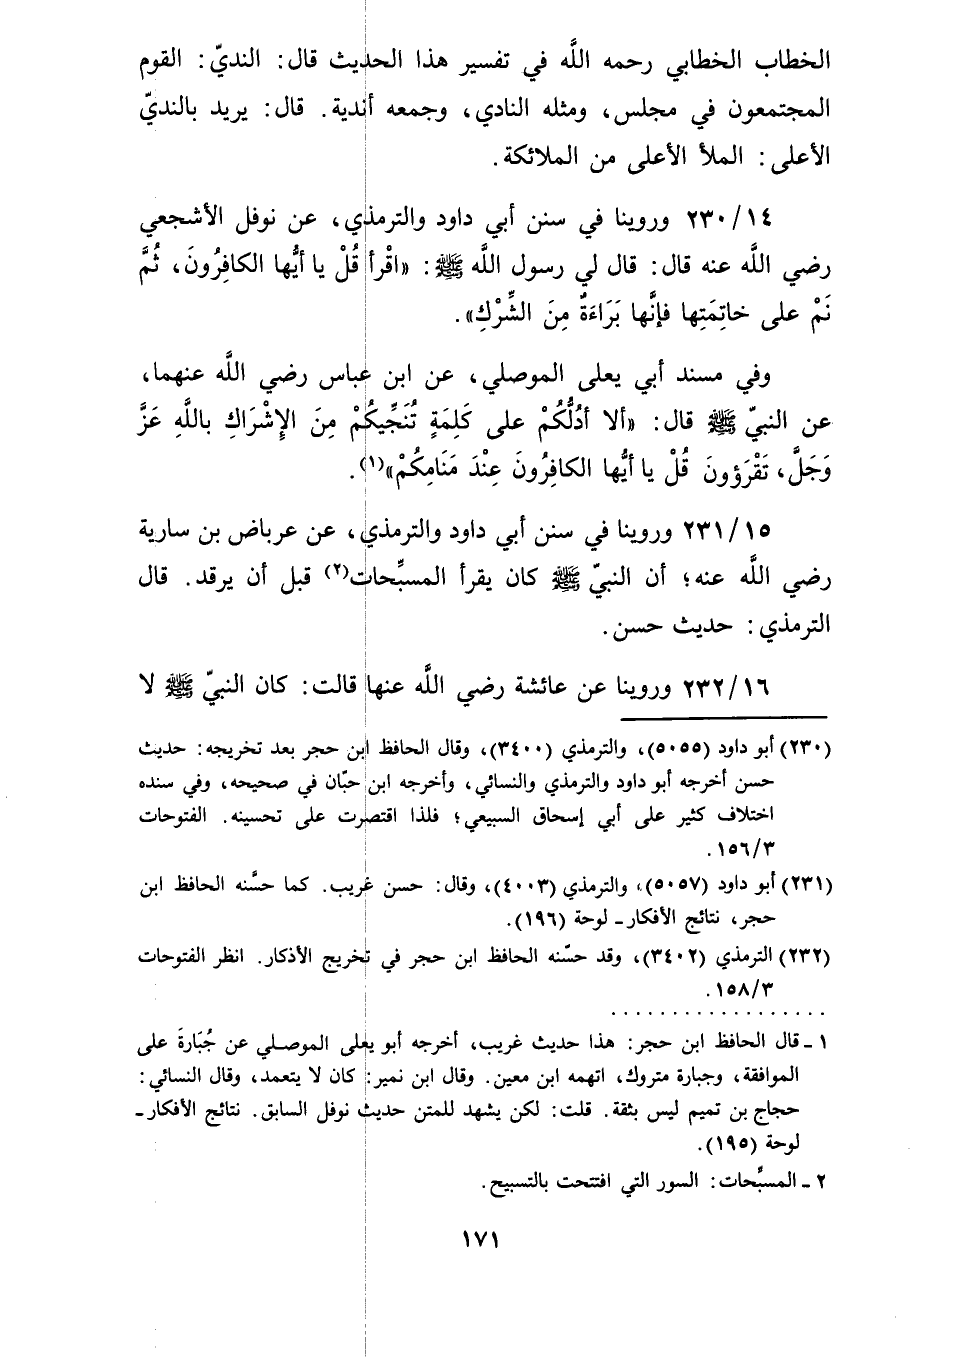 الخطاب الخطابي رحمه اللَّه في تفسير هذا الحديث قال: النديّ: القوم
المجتمعون في مجلس، ومثله النادي، وجمعه أندية. قال: يريد بالنديّ
الأعلى: الملأ الأعلى من الملائكة.
٢٣٠/١٤ وروينا في سنن أبي داود والترمذي، عن نوفل الأشجعي
رضي اللَّه عنه قال: قال لي رسول اللَّه ﷺ: «اقْرأ قُلْ يا أيُّها الكافِرُونَ، ثُمَّ
نَمْ على خاتِمَتِها فإنَّها بَرَاءَةٌ مِنَ الشِّرْكِ».
وفي مسند أبي يعلى الموصلي، عن ابن عباس رضي اللَّه عنهما،
عن النبيّ ﷺ قال: «ألا أدُلُّكُمْ على كَلِمَةٍ تُنَجِّيكُمْ مِنَ الإِشْرَاكِ باللَّهِ عَزَّ
وَجَلَّ، تَقْرَؤونَ قُلْ يا أيُّها الكافِرُونَ عِنْدَ مَنَامِكُمْ»(١).
٢٣١/١٥ وروينا في سنن أبي داود والترمذي، عن عرباض بن سارية
رضي اللَّه عنه؛ أن النبيّ ﷺ كان يقرأ المسبِّحات(٢) قبل أن يرقد. قال
الترمذي: حديث حسن.
٢٣٢/١٦ وروينا عن عائشة رضي اللَّه عنها قالت: كان النبيّ ﷺ لا
(٢٣٠) أبو داود (٥٠٥٥)، والترمذي (٣٤٠٠)، وقال الحافظ ابن حجر بعد تخريجه: حديث
حسن أخرجه أبو داود والترمذي والنسائي، وأخرجه ابن حبّان في صحيحه، وفي سنده
اختلاف كثير على أبي إسحاق السبيعي؛ فلذا اقتصرت على تحسينه. الفتوحات
١٥٦/٣.
(٢٣١) أبو داود (٥٠٥٧)، والترمذي (٤٠٠٣)، وقال: حسن غريب. كما حسَّنه الحافظ ابن
حجر، نتائج الأفكار ـ لوحة (١٩٦).
(٢٣٢) الترمذي (٣٤٠٢)، وقد حسّنه الحافظ ابن حجر في تخريج الأذكار. انظر الفتوحات
١٥٨/٣.
. . . . . . . . . . . . . . . . . .
١ ـ قال الحافظ ابن حجر: هذا حديث غريب، أخرجه أبو يعلى الموصلي عن جُبَارةَ على
الموافقة، وجبارة متروك، اتهمه ابن معين. وقال ابن نمير: كان لا يتعمد، وقال النسائي:
حجاج بن تميم ليس بثقة. قلت: لكن يشهد للمتن حديث نوفل السابق. نتائج الأفكار ـ
لوحة (١٩٥).
٢ ـ المسبِّحات: السور التي افتتحت بالتسبيح.
١٧١